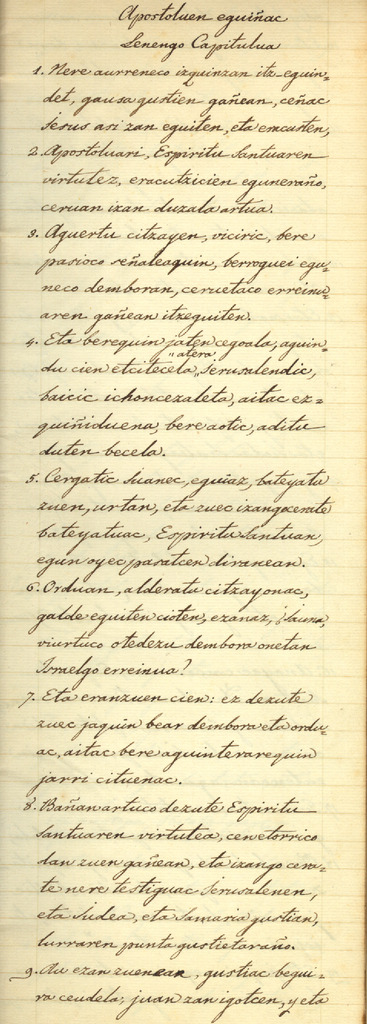 Apostoluen eguiñac
Lenengo Capitulua
1. Nere aurreneco izquinzan itz-eguin-
det, gausa gustien gañean, ceñac
Jesus asi zan eguiten, eta eracusten,
2. Apostoluari, Espiritu Santuaren
virtutez, eracutzicien eguneraño,
ceruan izan duzala artua.
3. Aguertu citzayen, viciric, bere
pasioco señaleaquin, berroguei egu-
neco demboran, ceruetaco erreinu-
aren gañean itzeguiten.
4. Eta berequin jaten cegoala, aguin-
du cien etcitecela "atera" Jerusalendic,
baicic ichoncezaleta, aitac ez-
quiñiduena, bere aotic, aditu
duten becela.
5. Cergatic Juanec, eguiaz, bateyatu
zuen, urtan, eta zuec izangocerate
bateyatuac, Espiritu Santuan,
egun oyec pasatcen diranean.
6. Orduan, alderatu citzayonac,
galde eguiten cioten, ezanaz, ¡Jauna,
viurtuco otedezu dembora onetan
Israelgo erreinua?
7. Eta eranzuen cien: ez dezute
zuec jaquin bear dembora eta ordu-
ac, aitac bere aguinterarequin
jarri cituenac.
8. Bañan artuco dezute Espiritu
Santuaren virtutea, cen etorrico
dan zuen gañean, eta izango cera-
te nere testiguac Jerusalenen,
eta Judea, eta Samaria gustian,
lurraren punta gustietaraño.
9. Au ezan zuenean, gustiac begui-
ra ceudela; juan zan igotcen, y eta